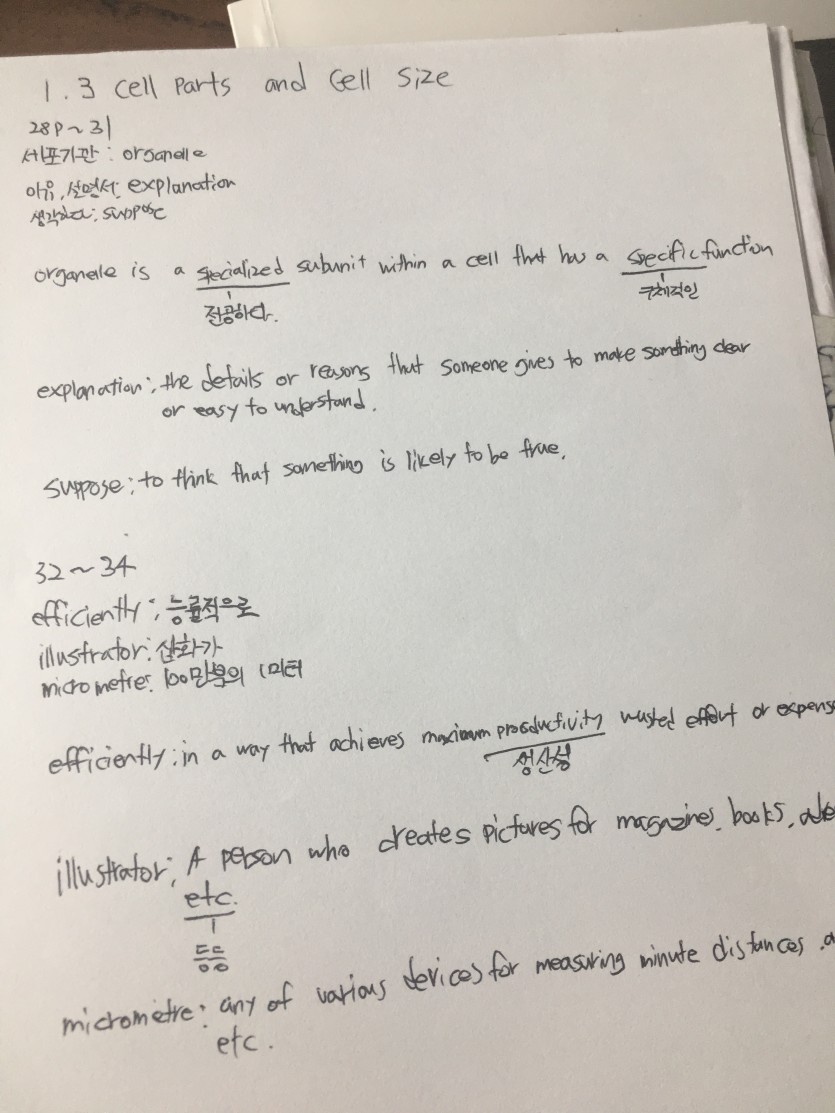 1.3 Cell Parts and Cell Size
28P~31
세포기관 : organelle
이유, 설명서: explanation
생각하다: suppose
organelle is a specialized subunit within a cell that has a specific function
전공하다. 구체적인
explanation: the details or reasons that someone gives to make something clear
or easy to understand.
suppose: to think that something is likely to be true.
32~34
efficiently: 능률적으로
illustrator: 삽화가
micrometre: 100만분의 1미터
efficiently: in a way that achieves maximum productivity wasted effort or expense
생산성
illustrator: A person who creates pictures for magazines, books,
etc.
등등
micrometre: any of various devices for measuring minute distances
etc.